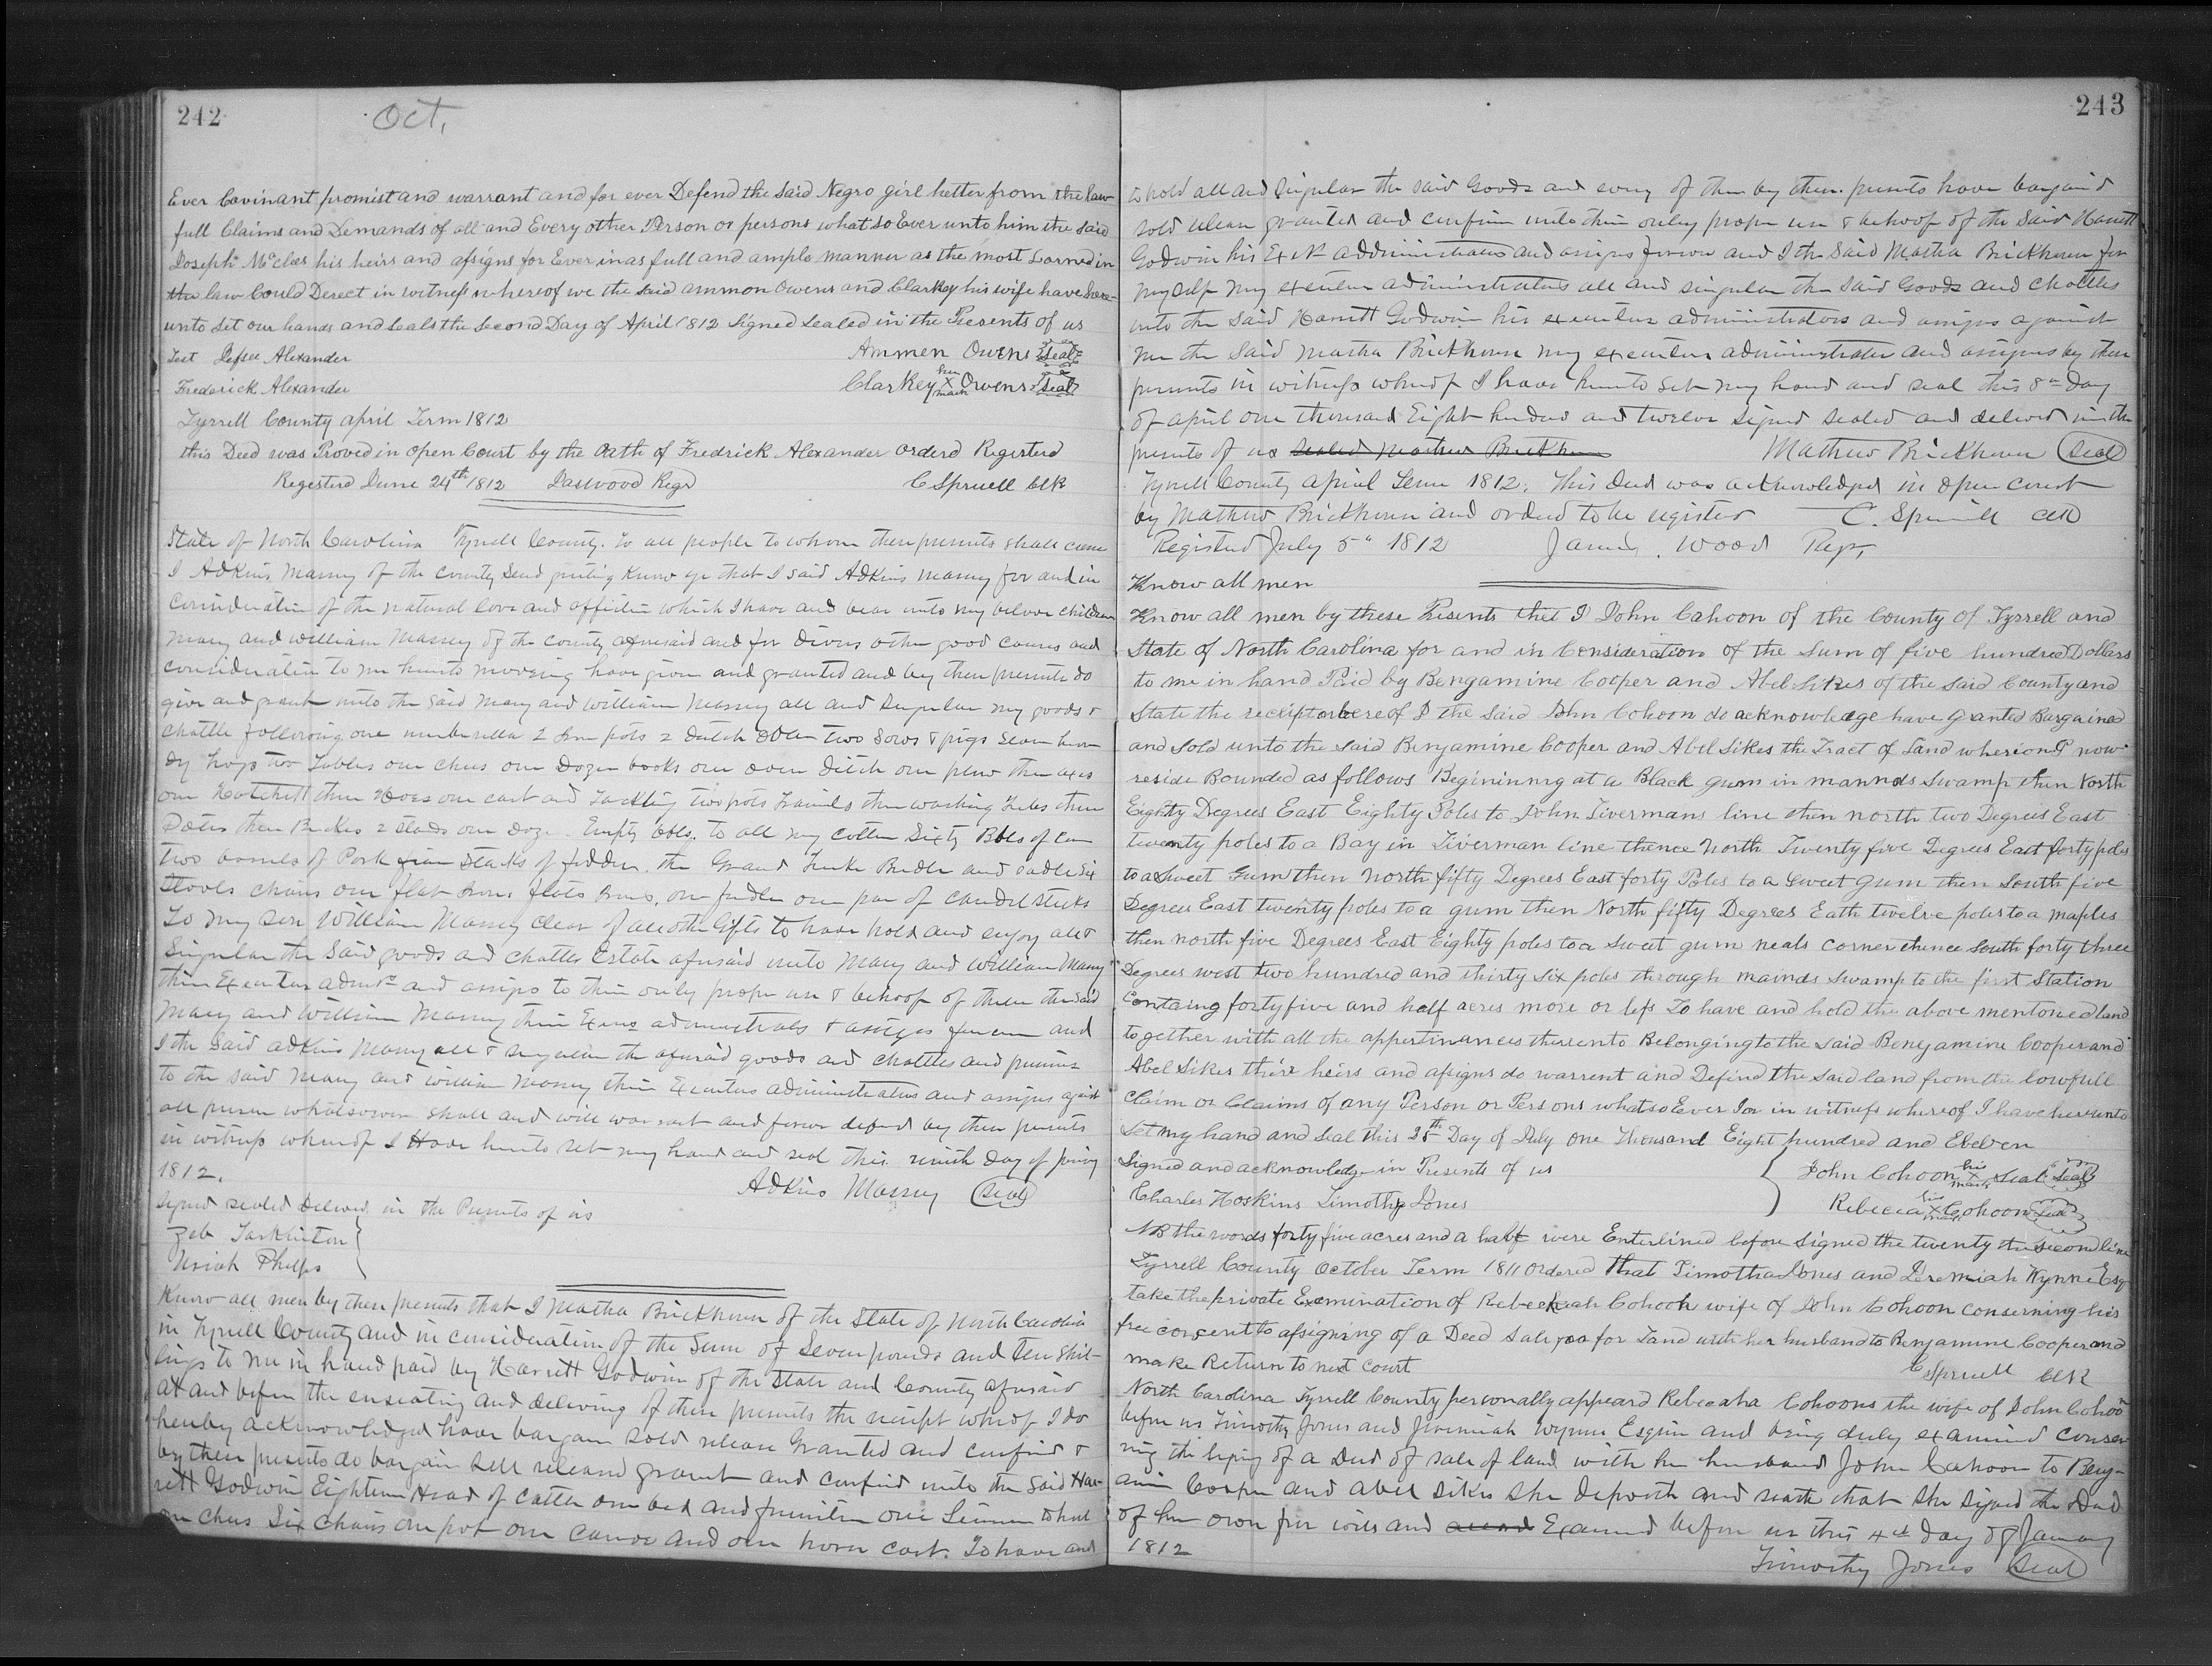 242
Oct,
Ever Covinant promist and warrant and for ever Defend the said Negro girl hetter from the law-
full Claims and Demands of all and Every other Person or persons what so Ever unto him the said
Joseph McClees his heirs and assigns for Ever in as full and ample manner as the most Larned in
the law Could Derect in witness whereof we the said ammon Owens and Clarkey his wife have here-
unto set our hands and seals the Second Day of April 1812 Signed sealed in the Presents of us
Test Jessee Alexander Ammen Owens Seal
Frederick Alexander Clarkey her X mark Owens Seal
Tyrrell County april Term 1812
this Deed was Proved in open Court by the Oath of Fredrick Alexander orderd Registerd
Registerd June 24th 1812 Jaswood Regr C Spruell Clk
State of North Carolina Tyrrell County. To all people to whom these presents shall come
I Adkins Massey of the county send greeting Know ye that I said Adkins Massey for and in
Consideration of the natural love and affiction which I have and bear unto my belove children
Mary and William Massey of the county aforesaid and for divers other good causes and
consideration to me hereunto moveing have given and granted and by these presents do
give and grant unto the said Mary and William Massey all and singular my goods &
chattle following one umberella 2 Iron pots 2 Dutch oven two sows & pigs seven
hogs two Tables one chest one Dozen books one oven ditch one plow three axes
one Hatchett three Hoes one cart and Tackling two pots three washing Tubes three
two barrels of Pork stacks of fodder. the Grand Bridle and saddle six
chairs one flat Irons one pair of Candel sticks
To my son William Massey clear of all other Gifts to have hold and enjoy all &
Singular the said goods and chattles Estate aforesaid unto Mary and William Massey
their Executor admrs and assigns to their only proper use & behoof of them the said
Mary and William Massey their Exers administrators & assigns forever and
I the said adkins Massey all & singular the aforesaid goods and chattles and premises
to the said Mary and William Massey their Executors administrators and assigns against
all person whatsoever shall and will warrant and forever defend by these presents
in witness whereof I Have hereunto set my hand and seal this ninth day of
1812.
Adkins Massey Seal
Signed sealed Delivered in the Presents of us
Zeb Tarkinton
Uriah Phelps
Know all men by these presents that I Mathu Brickhouse of the State of North Carolina
in Tyrrell County and in consideration of the Sum of Seven pounds and ten Shil-
lings to me in hand paid by Harrett Godwin of the State and County aforesaid
at and before the ensealing and delivering of these presents the receipt whereof I do
hereby acknowledged have bargain sold release Granted and confirmd &
by these presents do bargain sell release grant and confirmd unto the said Har-
rett Godwin Eighteen Head of Cattle one bed and furniture one
one chest Six chairs one pot one canoe and one horse cart. To have and
243
to hold all and singular the said Goods and every of them by these presents have bargaind
sold release granted and confirm unto their only proper use & behoof of the Said Harrett
Godwin his Exrs administrators and assigns forever and I the said Mathu Brickhouse for
my self my executor administrators all and singular the said Goods and chattles
unto the said Harrett Godwin his executor administrators and assigns against
me the said Mathu Brickhouse my executor administrator and assigns by these
presents in witness whereof I have hereunto set my hand and seal this 8th day
of april one thousand Eight hundred and twelve signed sealed and deliverd in the
presents of us sealed Mathew Brickhouse Mathew Brickhouse Seal
Tyrrell County apriel Term 1812. This Deed was acknowledged in open court
by Mathew Brickhouse and orderd to be register C. Spruill Clk
Registerd July 5th 1812 James. Wood Regr,
Know all men
Know all men by these Presents that I John Cahoon of the County of Tyrrell and
State of North Carolina for and in Consideration of the sum of five hundred Dollars
to me in hand Paid by Bengamine Cooper and Abel Sikes of the said County and
State the reccipt orbereof I the said John Cohoon do acknowledge have granted Bargained
and sold unto the said Benjamine Cooper and Abel Sikes the Tract of Land whereon I now
reside Bounded as follows Begininnrg at a Black gum in mannds Swamp then North
Eighty Degrees East Eighty Poles to John Livermans line then north two Degrees East
twenty poles to a Bay in Liverman line thence North Twenty five Degrees East forty poles
to a sweet Gum then North fifty Degrees East forty Poles to a Sweet Gum then South five
Degrees East twenty poles to a gum then North fifty Degrees Eath twelve poles to a maples
then north five Degrees East Eighty poles to a sweet gum neals corner thence South forty three
Degrees west two hundred and thirty six poles through mainds Swamp to the first Station
Containg forty five and half acres more or less To have and hold the above mentoned land
together with all the appertinances thereunto Belonging to the said Bengamine Cooper and
Abel Sikes there heirs and assigns do warrent and Defend the said land from the lowfull
Claim or Claims of any Person or Persons whatso Ever for in witness whereof I have hereunto
Set my hand and Seal this 25th Day of July one Thousand Eight hundred and Eleven
Signed and acknowledge in Presents of us John Cohoon his X mark Seal Seal
Charles Hoskins Timothy Jones Rebecca his X mark Cohoon Seal
NB the words forty five acres and a half were Enterlined before signed the twenty the second line
Tyrrell County October Term 1811 ordered that Timotha Jones and Jeremiah Wynne Esq
take the private Examination of Rebeckah Cohook wife of John Cohoon conserning his
free consent to assigning of a Deed Sale for Land with her husband to Benjamine Cooper and
make Return to next court C Spruell Clk
North Carolina Tyrrell County personally appeard Rebecaha Cohoons the wife of John Cohoo
before us Timothy Jones and Jeremiah Wynne Esquire and being duly examined conser
ning the siging of a Deed of sale of land with her husband John Cahoon to Beng-
amin Cooper and Abel Sikes she deposeth and saith that she signed the Deed
of her own free will and Examined before us this 4th day of January
1812
Timothy Jones Seal